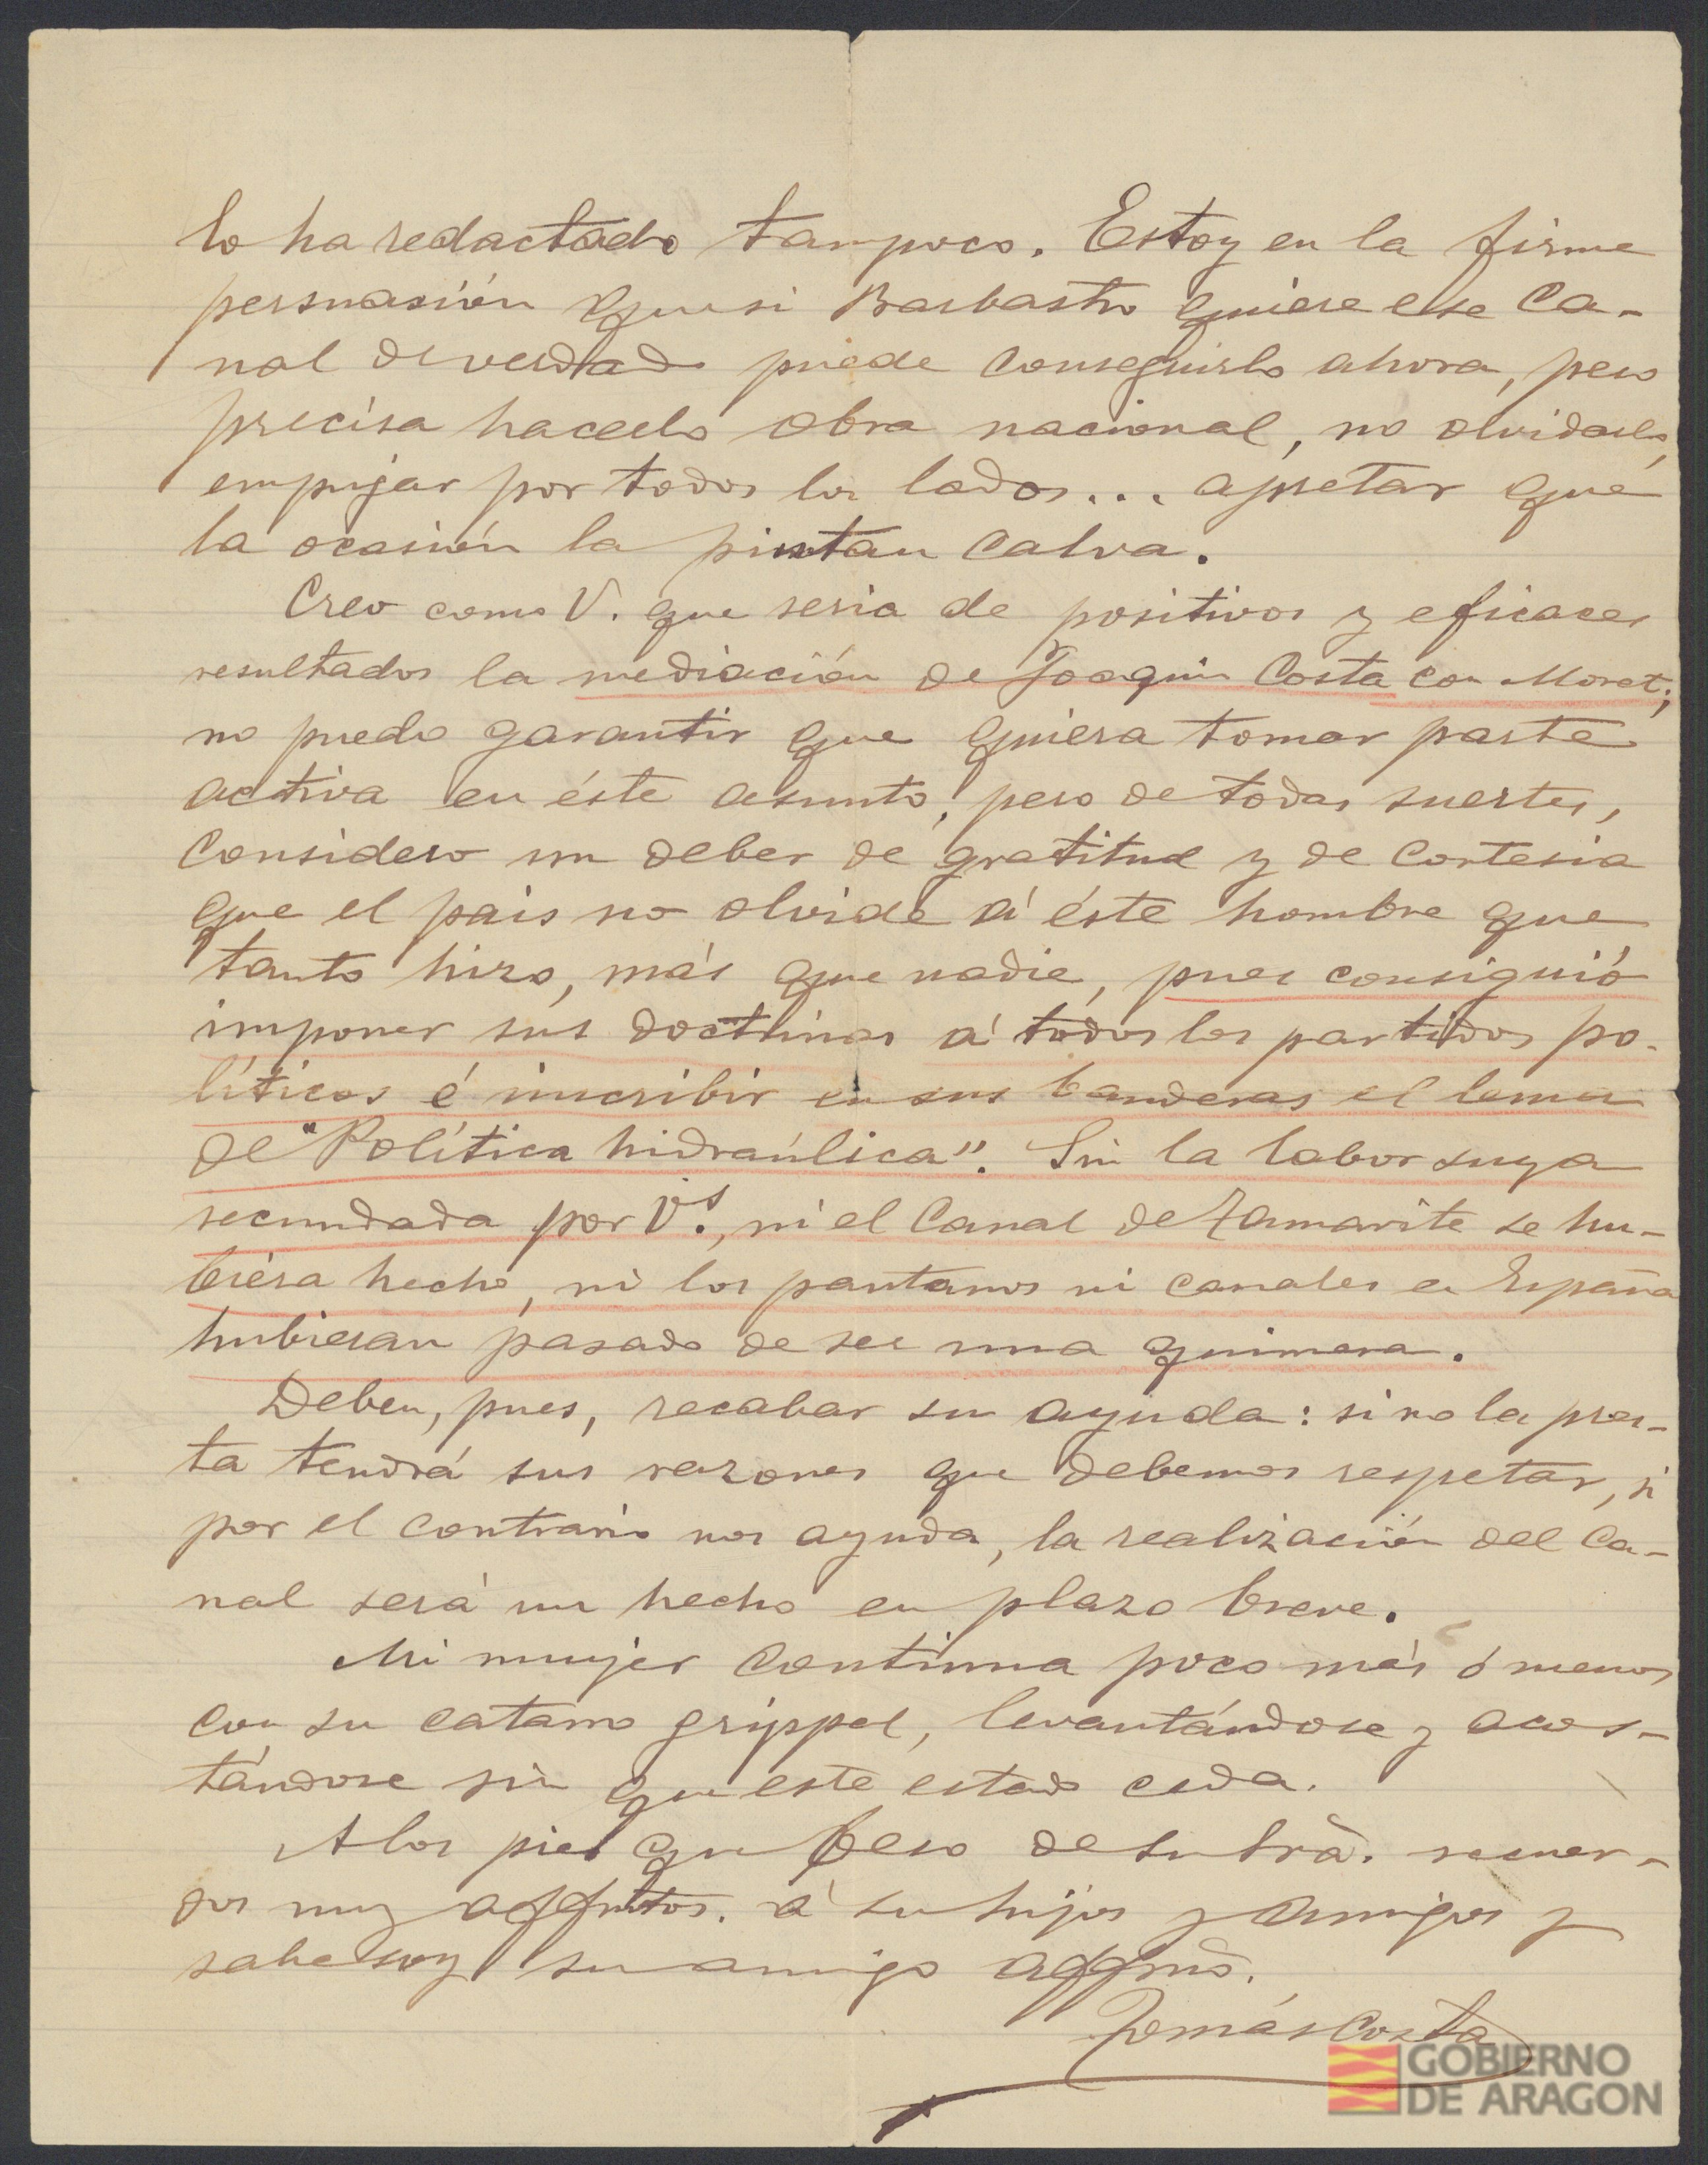 lo ha redactado tampoco. Estoy en la firme
persuasión que si Barbastro quiere ese Ca-
nal de verdad puede conseguirlo ahora, pero
precisa hacerlo obra nacional, no olvidarlo,
empujar por todos los lados... apretar que
la ocasión la pintan calva.
Creo como V. que seria de positivos y eficaces
resultados la mediación de Joaquin Costa con Moret;
no puedo garantir que quiera tomar parte
activa en éste asunto, pero de todas suertes,
considero un deber de gratitud y de cortesia
que el pais no olvide á éste hombre que
tanto hizo, más que nadie, pues consiguió
imponer sus doctrinas á todos los partidos po-
líticos é inscribir en sus banderas el lema
de "Política hidraúlica". Sin la labor suya
secundada por Vs., ni el Canal de Tamarite se hu-
biera hecho, ni los pantanos ni canales en España
hubieran pasado de ser una quimera.
Deben, pues, recabar su ayuda: si no la pres-
ta tendrá sus razones que debemos respetar, si
por el contrario nos ayuda, la realización del Ca-
nal será un hecho en plazo breve.
Mi mujer continua poco más ó menos
con su catarro grippal, levantándose y acos-
tándose sin que este estado ceda.
A los pies que beso de su Srà. recuer-
dos muy affmtos. á su hijos y amigos y
sabe soy su amigo affmo.
Tomás Costa
GOBIERNO
DE ARAGON